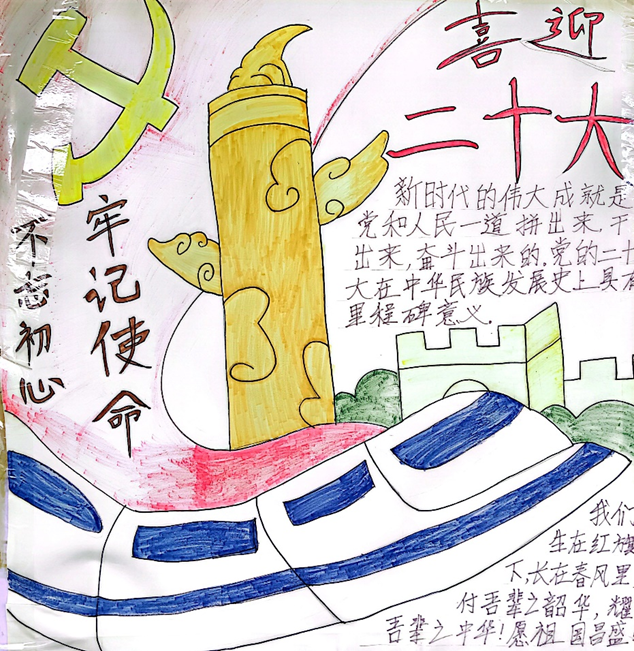 喜迎
二十大
新时代的伟大成就是
党和人民一道拼出来.干
出来,奋斗出来的.党的二十
大在中华民族发展史上具有
里程碑意义.
牢记使命
不忘初心
我们
生在红旗
下,长在春风里
付吾辈之韶华,耀
吾辈之中华!愿祖国昌盛